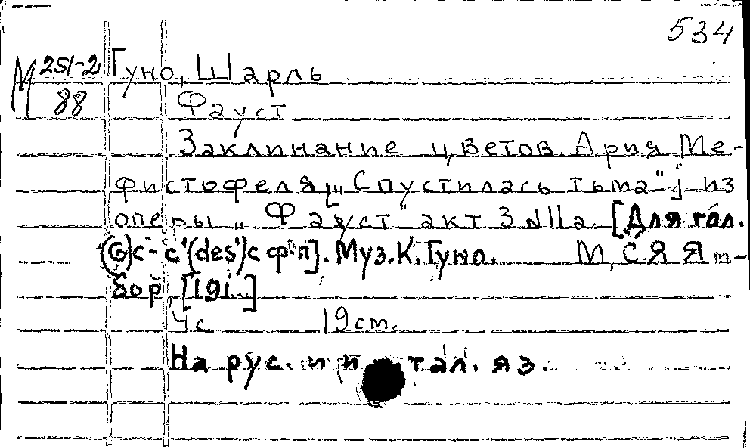 534
М 251-2 Гуно, Шарль
88 Фауст
Заклинание цветов. Ария Ме-
фистофеля [„Спустилась тьма"] из
оперы „Фауст" акт 3. №11а. [Для гол.
(G)c-c'(des')с ф-п]. Муз. К. Гуно. М,
бор, [191..]
4с 19см.
На рус. и итал. яз.